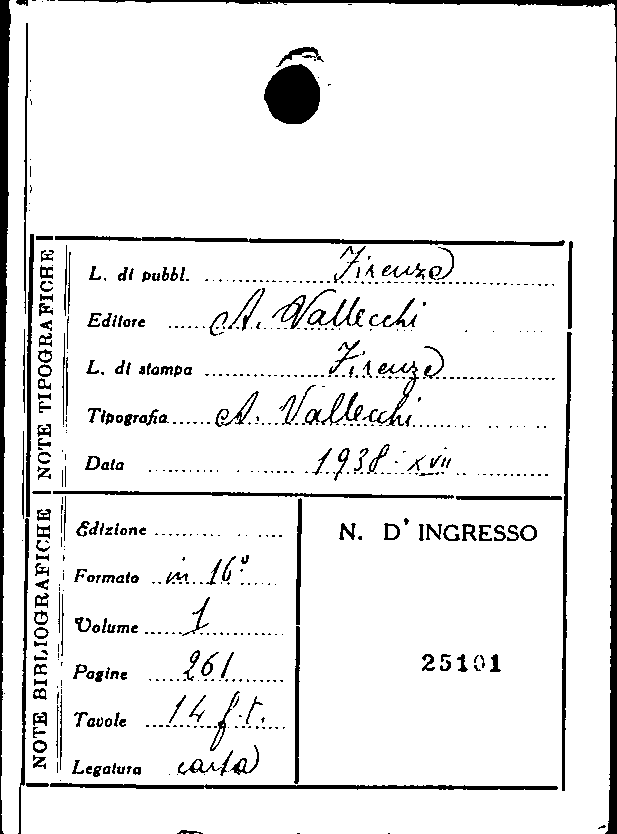 NOTE TIPOGRAFICHE
L. di pubbl. Firenze
Editore A. Vallecchi
L. di stampa Firenze
Tipografia A. Vallecchi
Data 1938-XVII
NOTE BIBLIOGRAFICHE
Edizione
Formato in 16º
Volume 1
Pagine 261
Tavole 14 f.t.
Legatura carta
N. D'INGRESSO
25101